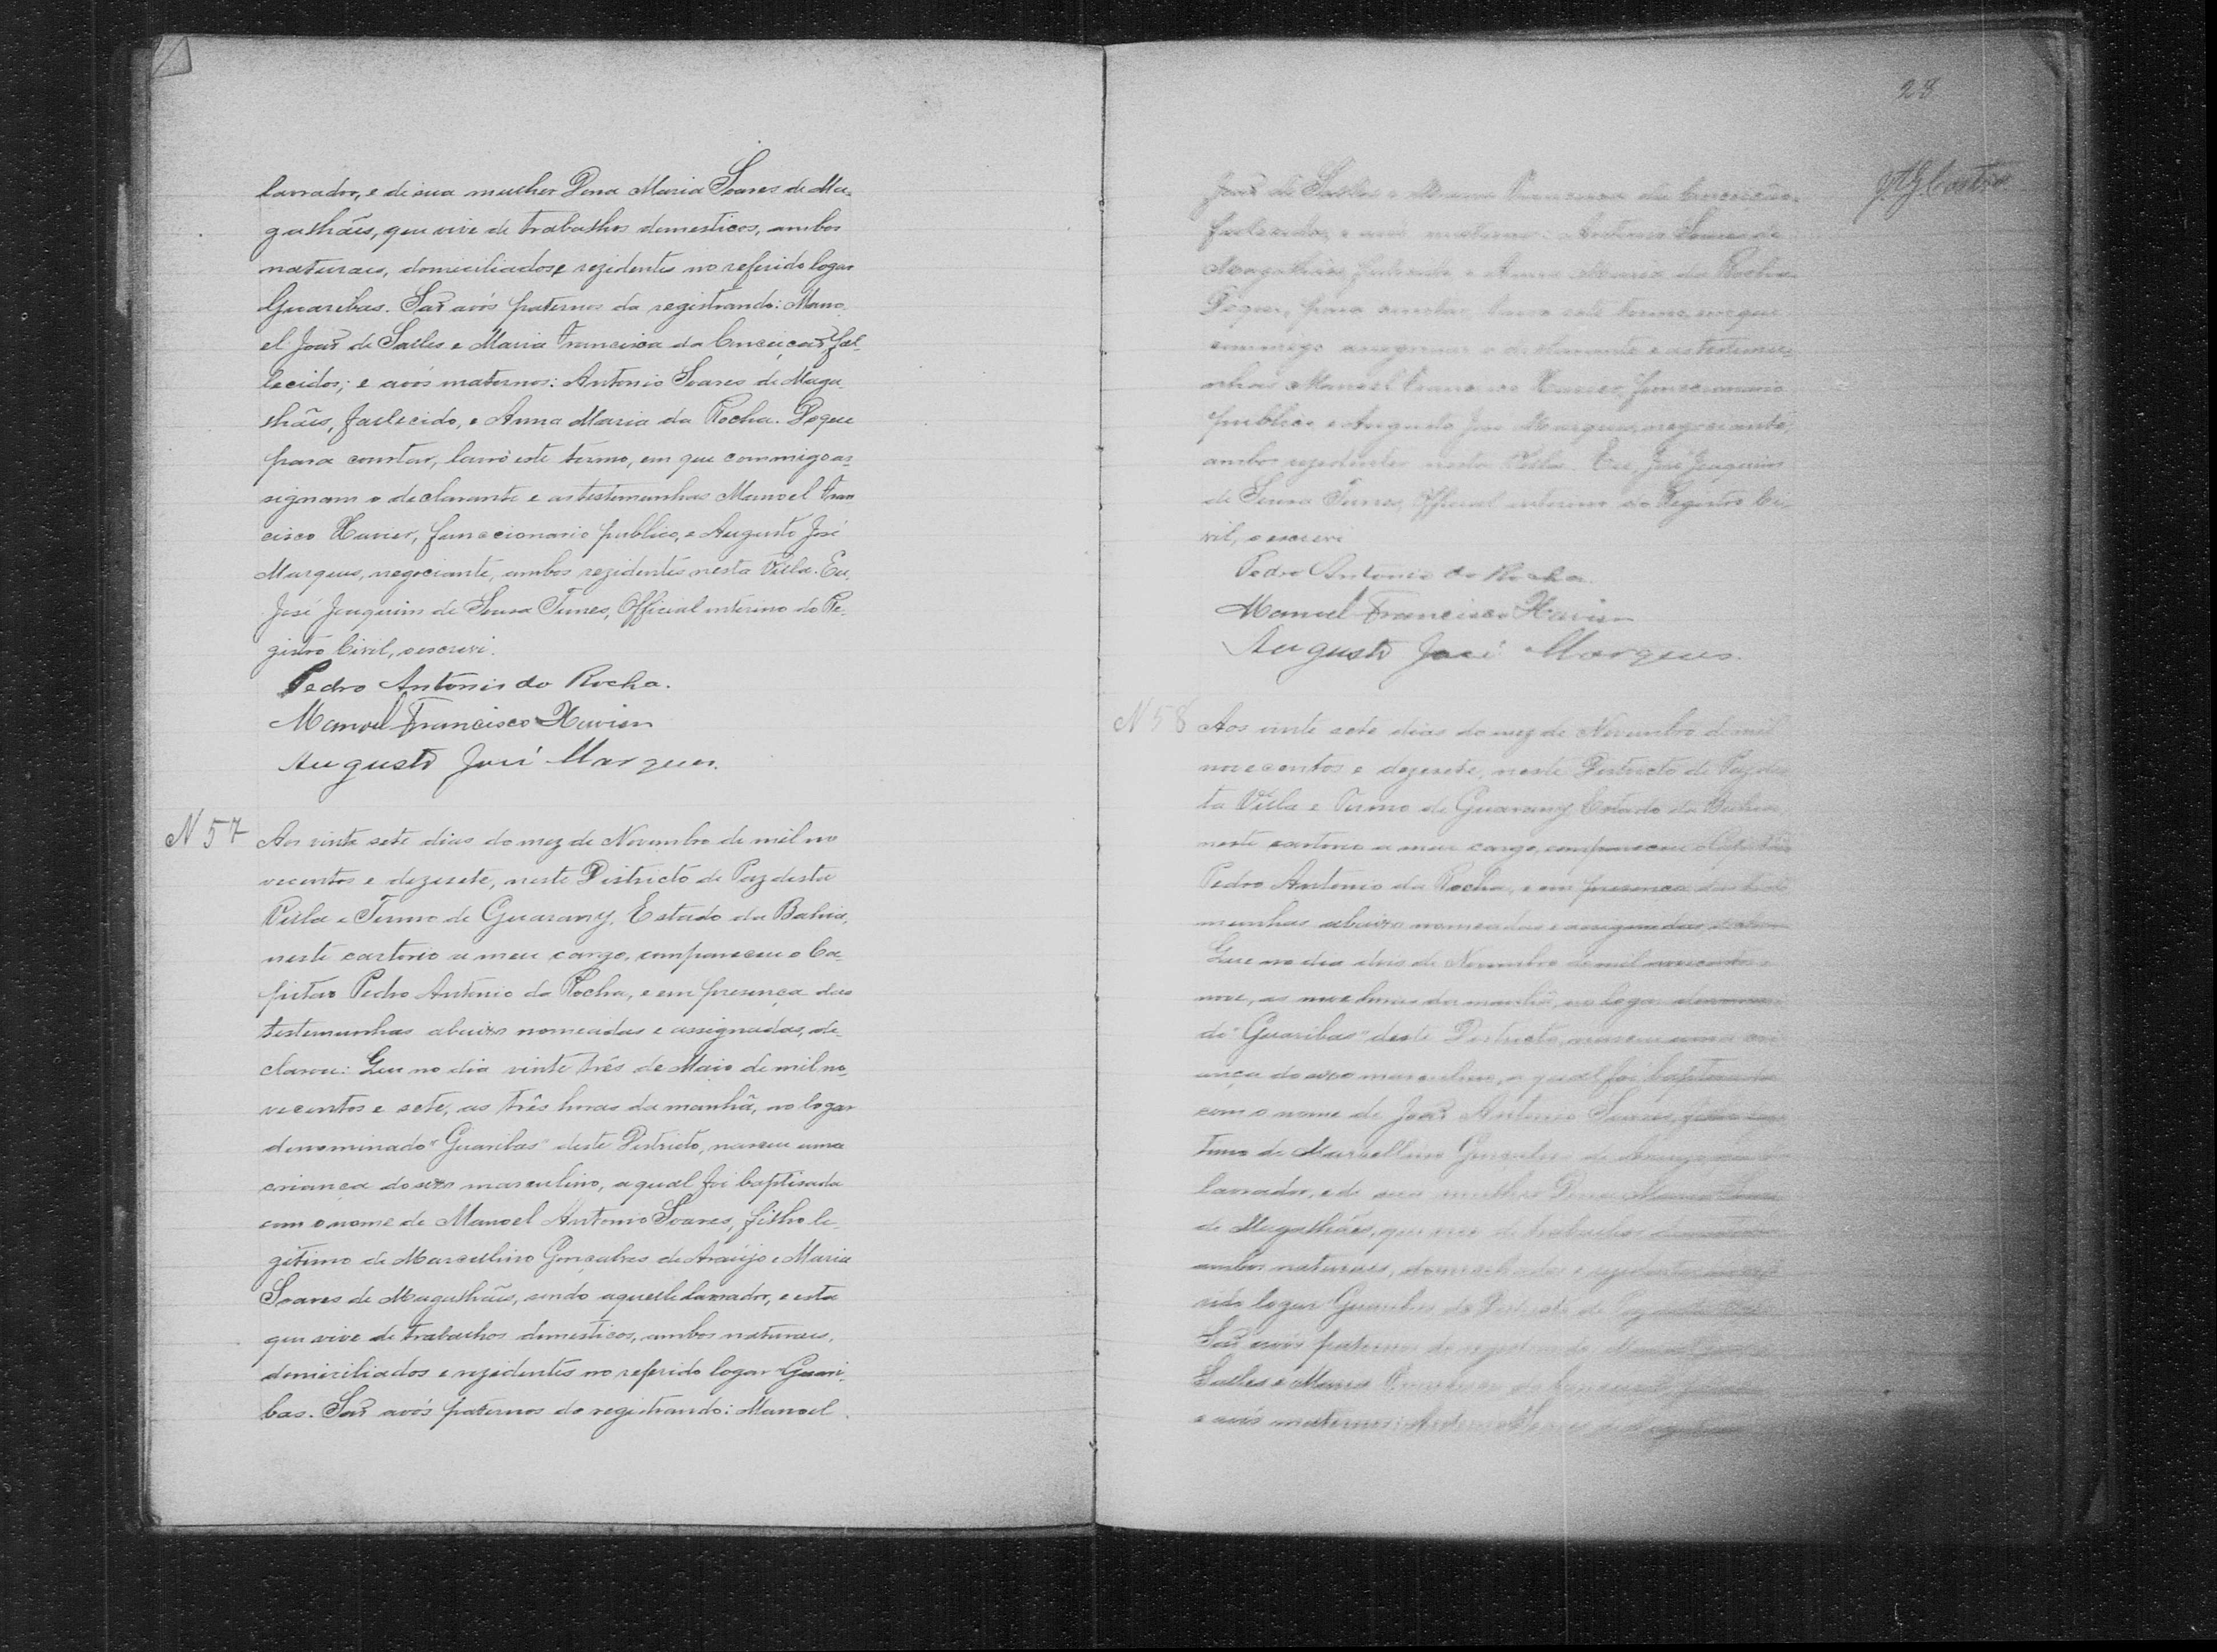 lavrador, e de sua mulher Dona Maria Soares de Ma-
galhães, que vive de trabalhos domesticos, ambos
naturaes, domiciliados e rezidentes no referido logar
Guaribas. São avós paternos da registrando: Mano-
el João de Salles e Maria Francisca da Conceição, fal-
lecidos; e avós maternos: Antonio Soares de Maga-
lhães, fallecido, e Anna Maria da Rocha. Do que
para constar, lavrei este termo, em que commigo as-
signam o declarante e as testemunhas Manoel Fran
cisco Xavier, funccionario publico, e Augusto José
Marques, negociante, ambos rezidentes nesta Villa. Eu,
José Joaquim de Sousa Tunes, Official interino do Re-
gistro Civil, o escrevi.
Pedro Antonio da Rocha.
Manoel Francisco Xavier
Augusto José Marques.
N 57 Aos vinte sete dias do mez de Novembro de mil no
vecentos e dezesete, neste Districto de Paz desta
Villa e Termo de Guarany, Estado da Bahia,
neste cartorio a meu cargo, compareceu o Ca-
pitão Pedro Antonio da Rocha, e em presença das
testemunhas abaixo nomeadas e assignadas, de-
clarou: Que no dia vinte três de Maio de mil no-
vecentos e sete, as três horas da manhã, no logar
denominado "Guaribas" deste Districto, nasceu uma
criança do sexo masculino, a qual foi baptisada
com o nome de Manoel Antonio Soares, filho le-
gitimo de Marcellino Gonçalves de Araujo e Maria
Soares de Magalhães, sendo aquelle lavrador, e esta
que vive de trabalhos domesticos, ambos naturaes,
domiciliados e rezidentes no referido logar Guari-
bas. São avós paternos do registrando: Manoel
28
João de Salles e Maria Francisca da Conceição,
fallecidos, e avós maternos: Antonio Soares de
Magalhães, fallecido e Anna Maria da Rocha.
Do que, para constar, lavro este termo, em que
commigo assignam o declarante e as testemu-
nhas Manoel Francisco Xavier, funccionario
publico, e Augusto José Marques, negociante,
ambos rezidentes nesta Villa. Eu, José Joaquim
de Sousa Tunes, Official interino do Registro Ci-
vil, o escrevi
Pedro Antonio da Rocha.
Manoel Francisco Xavier
Augusto José Marques.
N 58 Aos vinte sete dias do mez de Novembro de mil
novecentos e dezesete, neste Districto de Paz des
ta Villa e Termo de Guarany, Estado da Bahia,
neste cartorio a meu cargo, compareceu o Capitão
Pedro Antonio da Rocha, e em presença das teste
munhas abaixo nomeadas e assignadas,
Que no dia dois de Novembro de mil novecentos e
nove, as nove horas da manhã, no logar denomina
do "Guaribas" deste Districto, nasceu uma cri
ança do sexo masculino, a qual foi baptisada
com o nome de João Antonio Soares, filho
timo de Marcellino Gonçalves de Araujo,
lavrador, e de sua mulher Dona Maria Soares
de Magalhães, que vive de trabalhos domesticos
ambos naturaes, domiciliados e rezidentes no refe
rido logar Guaribas do Districto de Paz
São avós paternos do registrando: Manoel
Salles e Maria Francisca da Conceição,
e avós maternos: Antonio Soares de Magalhães